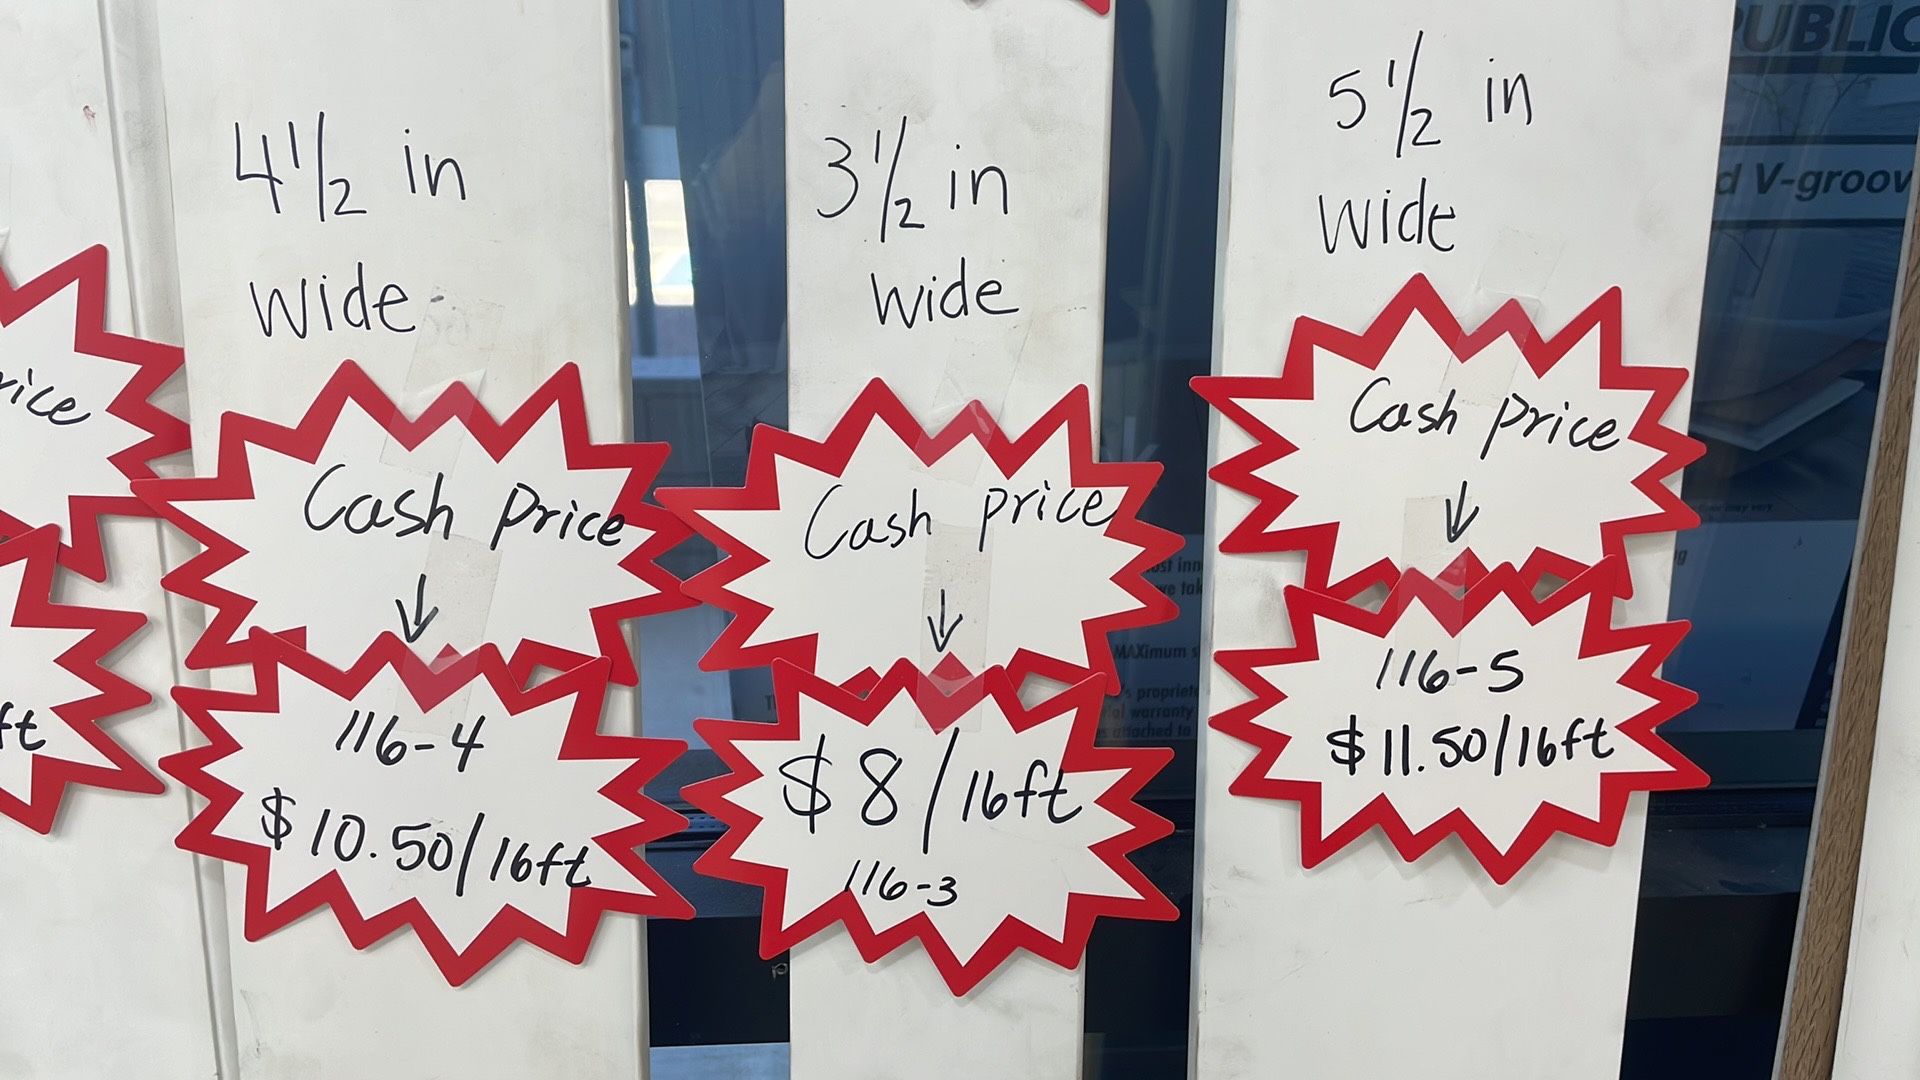 4 1/2 in
wide
Cash Price
↓
116-4
$10.50/16ft
3 1/2 in
wide
Cash price
↓
$8/16ft
116-3
5 1/2 in
wide
Cash price
↓
116-5
$11.50/16ft
rice
ft
UBLIC
d V-groov
MAXimum s
warranty
attached to